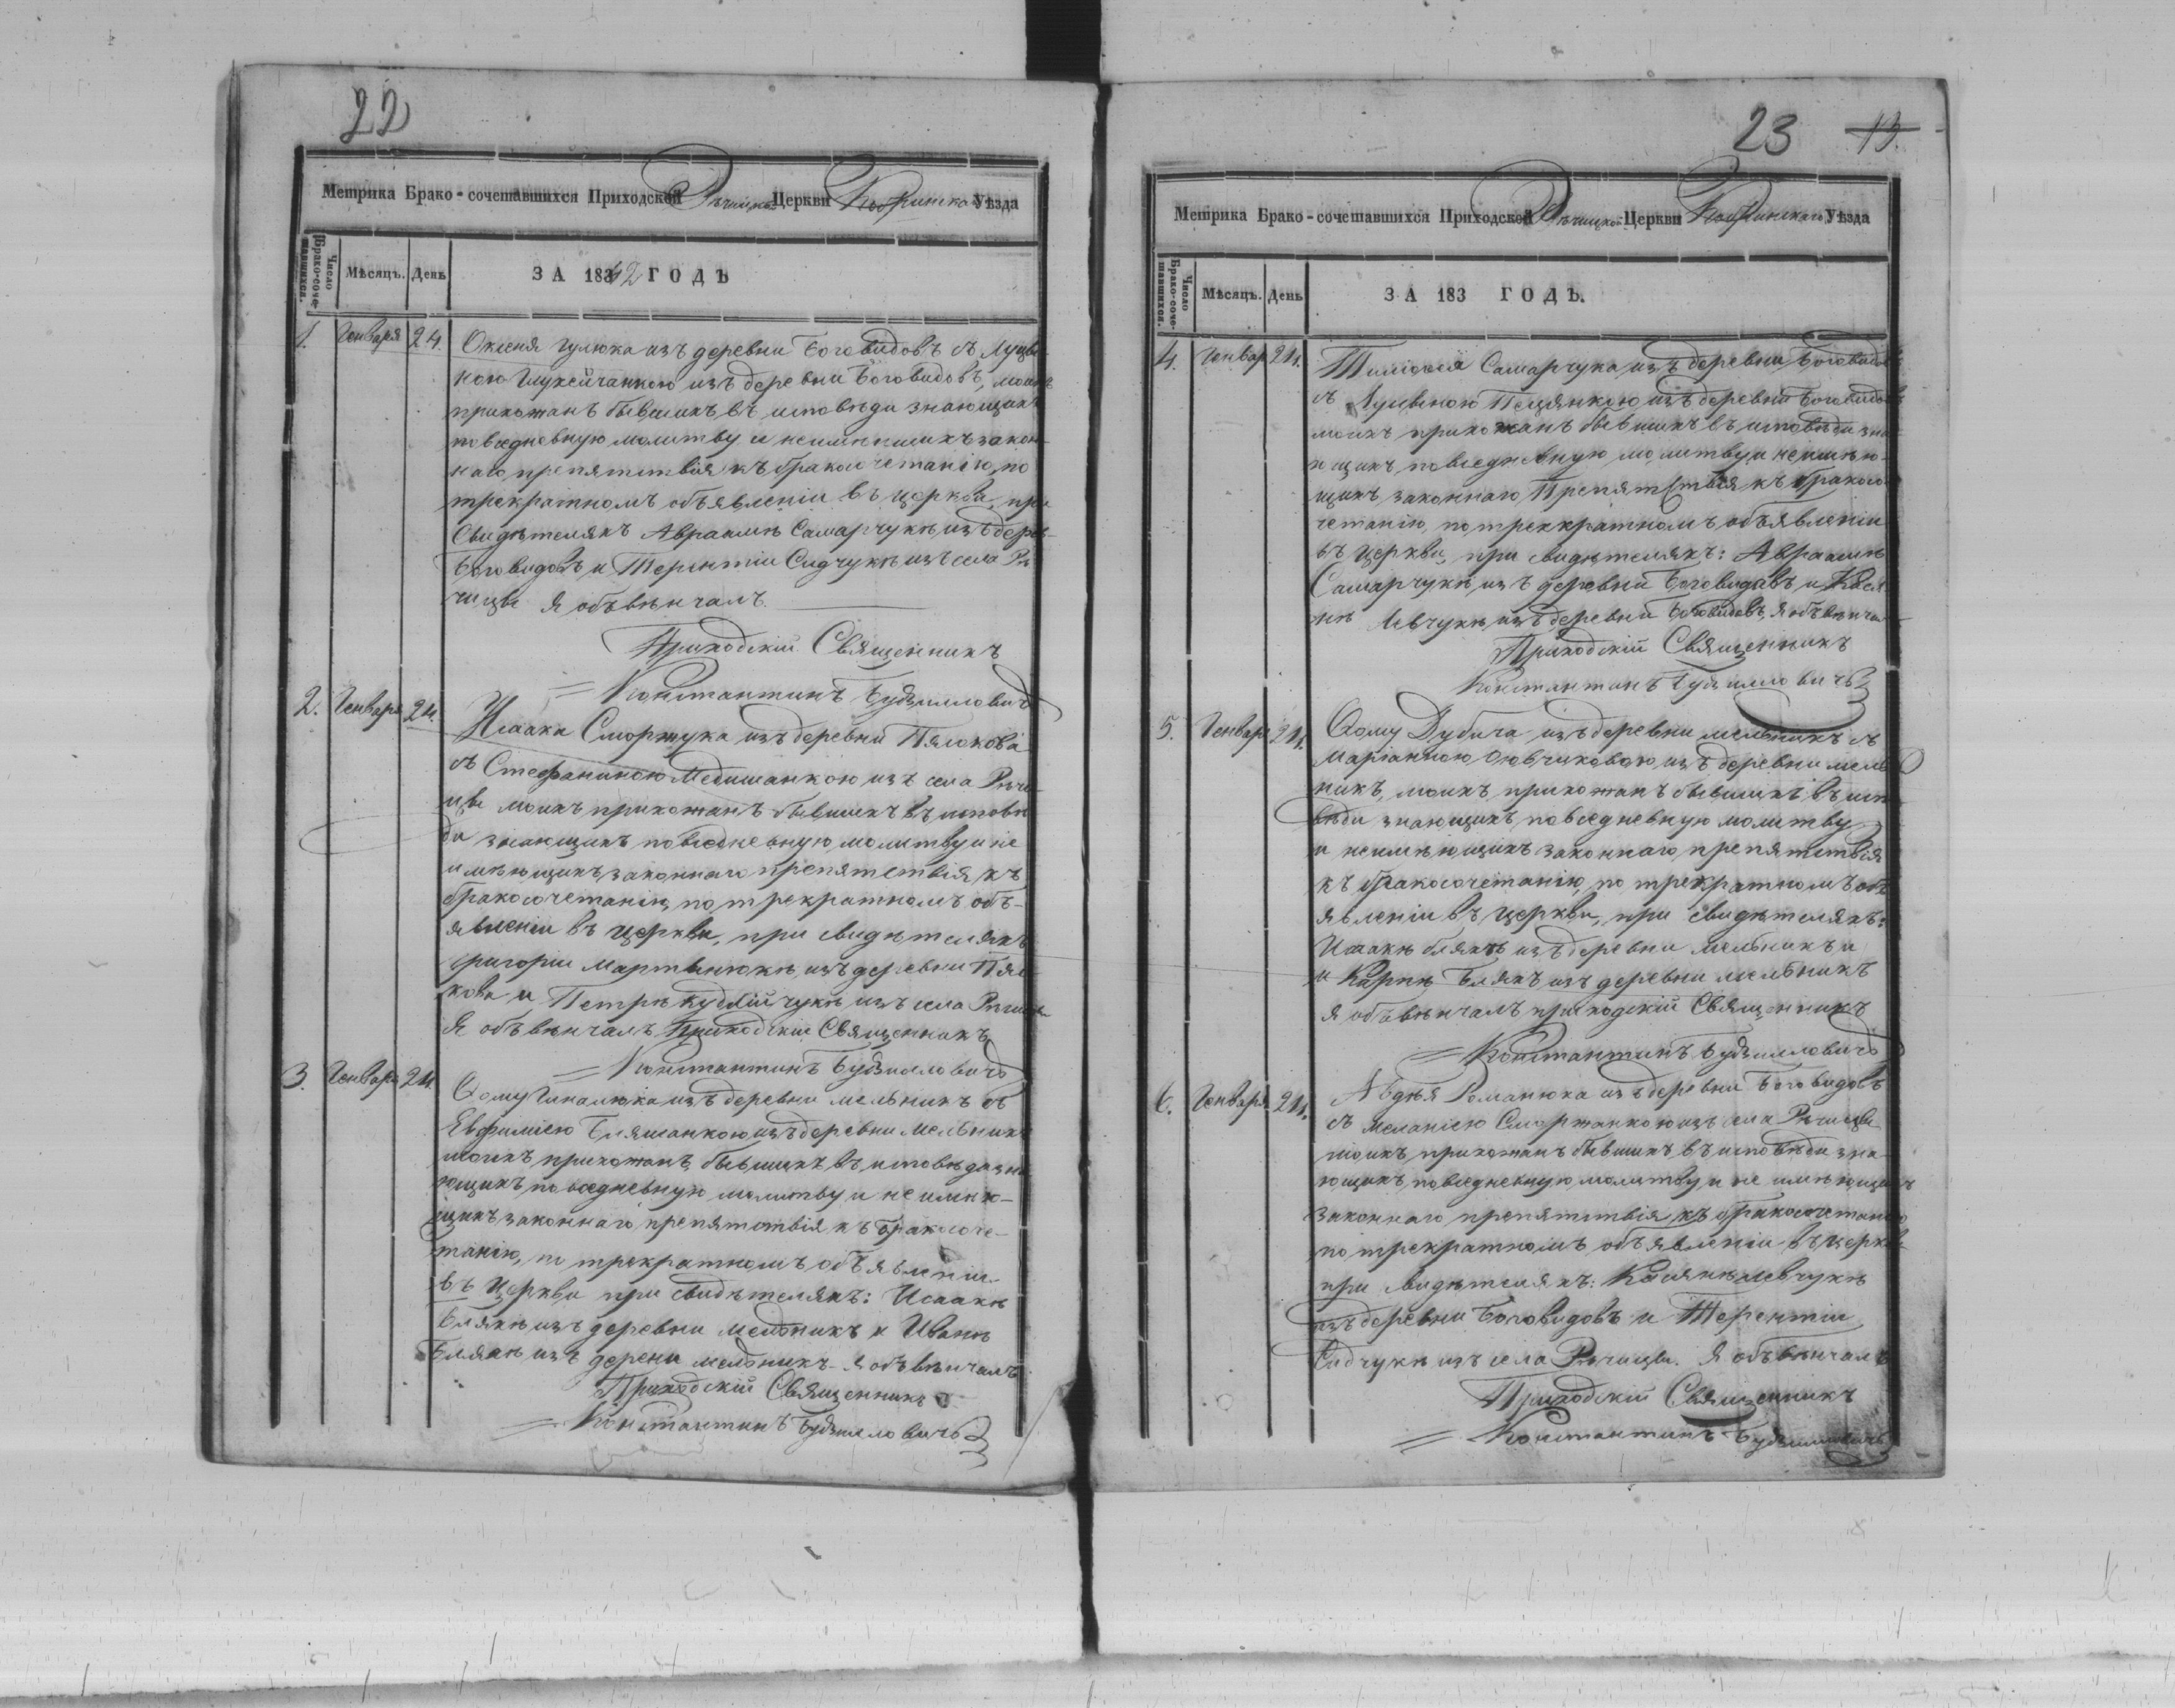 22
Метрика Брако-сочетавшихся Приходской Рѣчицкой Церкви Кобринскаго Уѣзда
Число Брако-сочетавшихся.
Мѣсяцъ.
День
ЗА 1842 ГОДЪ
1. Генваря 24.
изъ деревни Боговидовъ съ Луцы-
кою изъ деревни Боговидовъ, моихъ
прихожанъ бывшихъ въ исповѣди знающихъ
повседневную молитву и неимѣвшихъ закон-
наго препятствія къ бракосочетанію, по
трекратномъ объявленіи въ церкви, при
Свидѣтеляхъ Авраамѣ Самарчукѣ изъ дерев-
Боговидовъ и Терентіи Сидчукѣ изъ села Рѣ-
чицы я объвѣнчалъ.
Приходскій Священникъ
Константинъ Будзилловичъ
2. Генваря 24.
Исаака Сморжука изъ деревни
съ Стефаниною изъ села Рѣчи-
цы моихъ прихожанъ бывшихъ въ исповѣ
ди знающихъ повседневную молитву и не
имѣющихъ законнаго препятствія къ
бракосочетанію, по трекратномъ объ-
явленіи въ церкви, при свидѣтеляхъ
Григории Мартынюкѣ изъ деревни
и Петрѣ изъ села Рѣчицы
Я объвѣнчалъ Приходскій Священникъ
Константинъ Будзилловичъ
3. Генваря 24.
Ѳому изъ деревни мельникъ съ
Евфимiею Бляшанкою изъ деревни Мельникъ
моихъ прихожанъ бывшихъ въ исповѣди зна
ющихъ повседневную молитву и не имѣю-
щихъ законнаго препятствія къ бракосоче-
танію, по трекратномъ объявленіи
въ Церкви при свидѣтеляхъ: Исаакѣ
Бляхѣ изъ деревни мельникъ и Иванѣ
Бляхѣ изъ дерени мельникъ я объвѣнчалъ
Приходскій Священникъ
Константинъ Будзилловичъ
23 13.
Метрика Брако-сочетавшихся Приходской Рѣчицкой Церкви Кобринскаго Уѣзда
Число Брако-сочетавшихся.
Мѣсяцъ.
День
ЗА 183 ГОДЪ.
4. Генвар 24.
Самарчука изъ деревни Боговидовъ
съ изъ деревни Боговидовъ
моихъ прихожанъ бывшихъ въ исповѣди зна
ющихъ повседневную молитву и неимѣю-
щихъ законнаго Препятствія къ бракосо
четанію, по трекратномъ объявленіи
въ церкви, при свидѣтеляхъ: Авраамѣ
Самарчукѣ изъ деревни Боговидовъ и Касья
нѣ Левчукѣ изъ деревни Боговидовъ, я объвѣнча
Приходскій Священникъ
Константинъ Будзилловичъ
5. Генваря 24.
Ѳому Дубича изъ деревни мельникъ съ
Маріанною изъ деревни мель
никъ, моихъ прихожанъ бывшихъ въ испо
вѣди знающихъ повседневную молитву
и неимѣющихъ законнаго препятствія
къ бракосочетанію, по трекратномъ объ
явленіи въ церкви, при свидѣтеляхъ:
Исаакѣ Бляхѣ изъ деревни мельникъ и
и Карпѣ Бляхѣ изъ деревни мельникъ
я объвѣнчалъ приходскій Священникъ
Константинъ Будзилловичъ
6. Генваря 24.
Романюка изъ деревни Боговидовъ
съ Меланіею Сморжанкою изъ села Рѣчицы
моихъ прихожанъ бывшихъ въ исповѣди зна
ющихъ повседневную молитву и не имѣющихъ
законнаго препятствія къ бракосочетанію
по трекратномъ объявленіи въ церкви
при свидѣтеляхъ: Касьянѣ Левчукѣ
изъ деревни Боговидовъ и Терентіи
Сидчукѣ изъ села Рѣчицы. Я объвѣнчалъ
Приходскій Священникъ
Константинъ Будзилловичъ